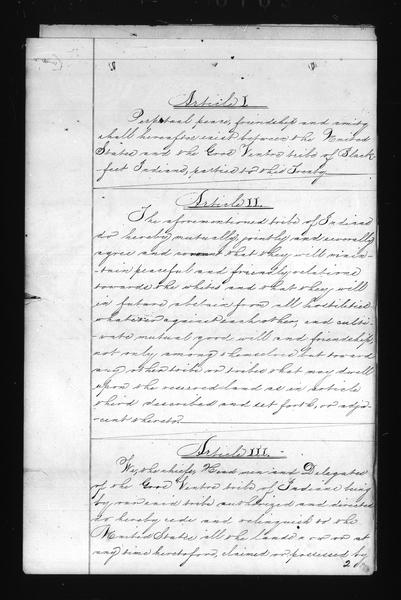 Article I.
Perpetual peace, friendship and amity
shall hereafter exist between the United
States and the Gros Ventre tribe of Black-
feet Indians, parties to this Treaty.
Article II.
The aforementioned tribe of Indians
do hereby mutually, jointly and severally
agree and covenant that they will main-
tain peaceful and friendly relations
towards the whites and that they will
in future abstain from all hostilities
whatever against each other, and culti-
vate mutual good will and friendship,
not only among themselves but toward
any other tribe or tribes that may dwell
upon the reserved land as in article
third described and set forth, or adja-
cent thereto.
Article III.
We, the chiefs, Head men and Delegates
of the Gros Ventre tribe of Indians being
by our said tribe authorized and directed
do hereby cede and relinquish to the
United States all the lands now or at
any time heretofore, claimed or possessed by
2